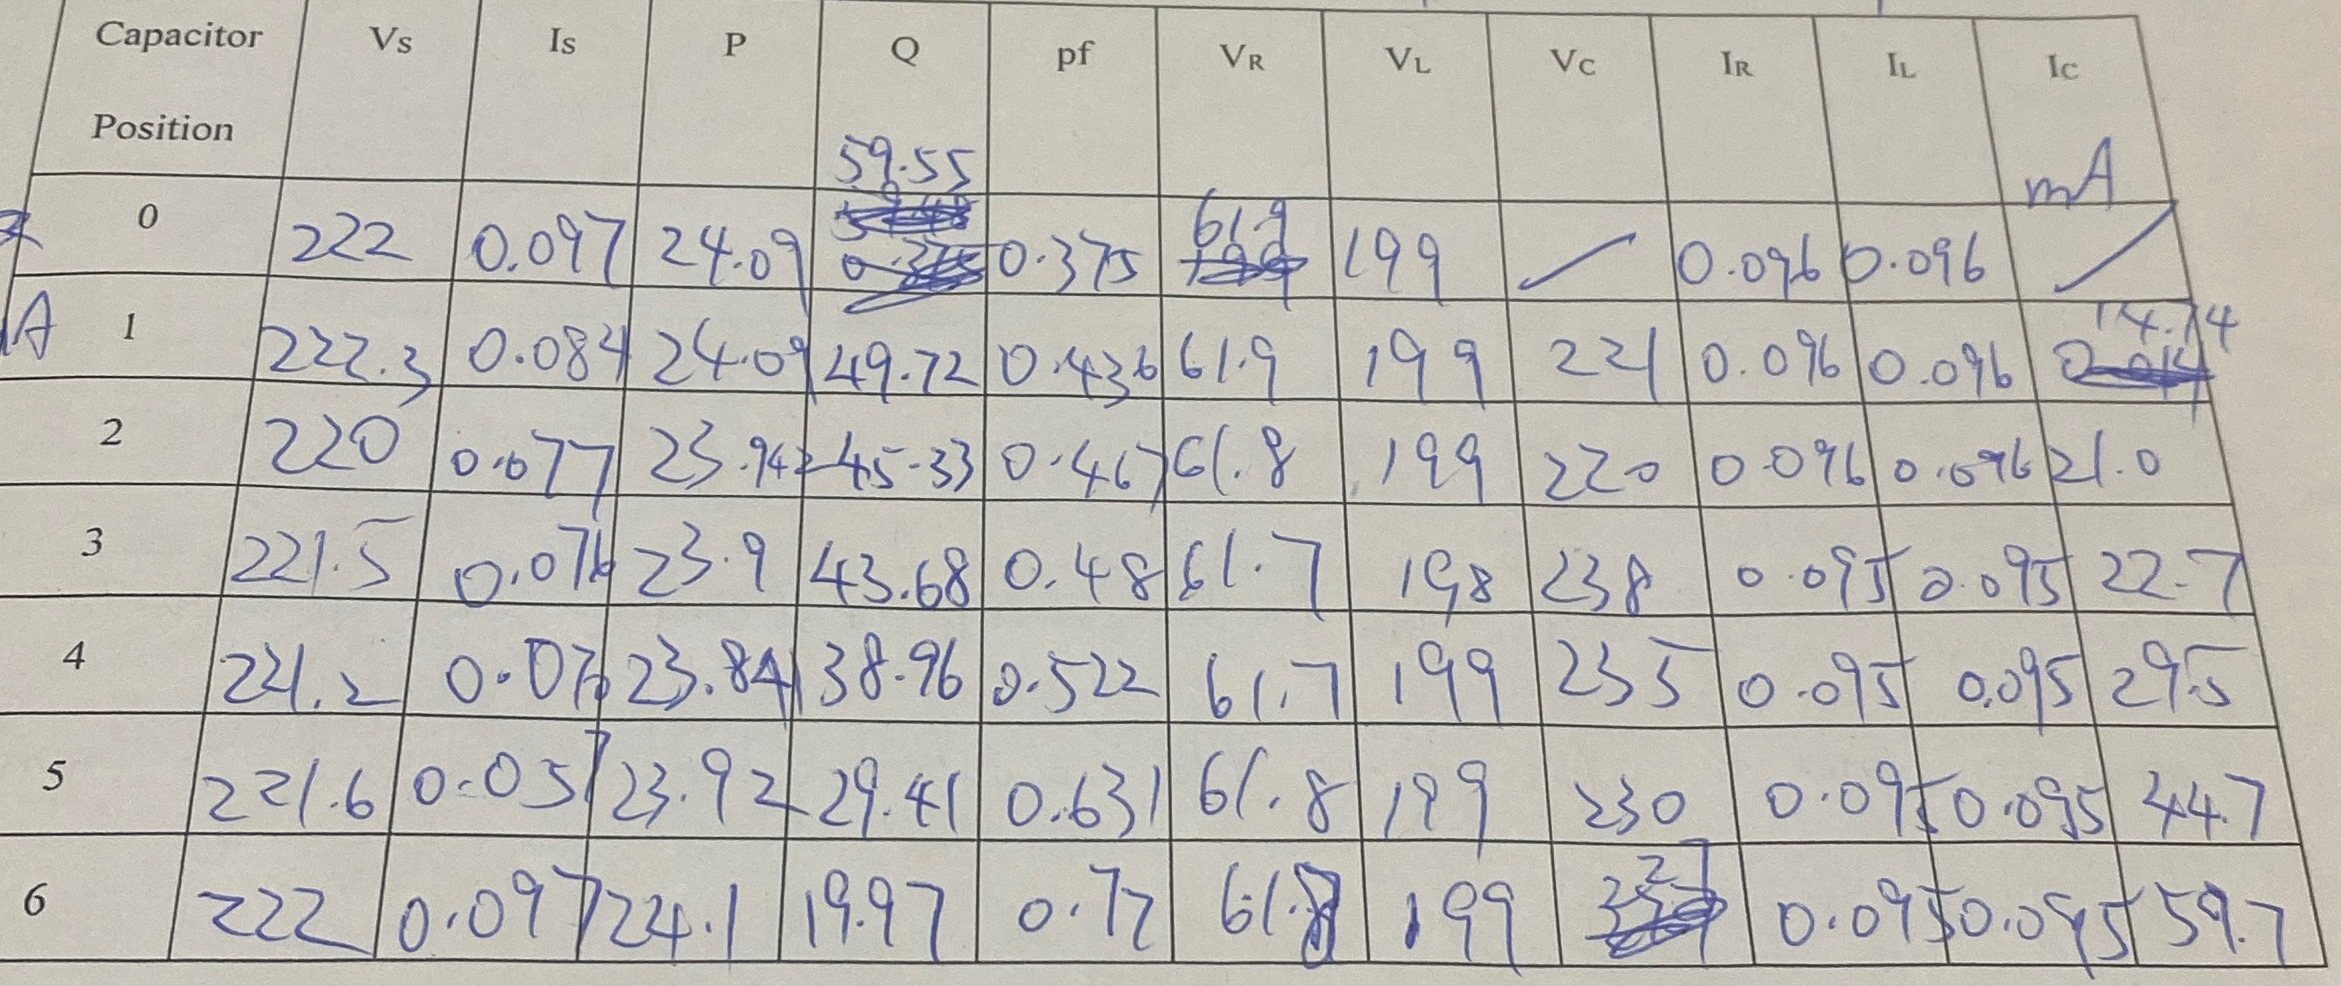 Capacitor Position Vs Is P Q pf VR VL VC IR IL IC
mA
59.55
0 222 0.097 24.09 0.375 61.9 199 / 0.096 0.096 /
A 1 222.3 0.084 24.09 49.72 0.436 61.9 199 221 0.096 0.096 14.14
2 220 0.077 23.942 45.33 0.467 61.8 199 220 0.096 0.096 21.0
3 221.5 0.076 23.9 43.68 0.48 61.7 198 238 0.095 0.095 22.7
4 221.2 23.84 38.96 0.522 61.7 199 235 0.095 0.095 29.5
5 221.6 0.057 23.92 29.41 0.631 61.8 199 230 0.095 0.095 44.7
6 222 0.097 24.1 19.97 0.77 199 227 0.095 0.095 59.7